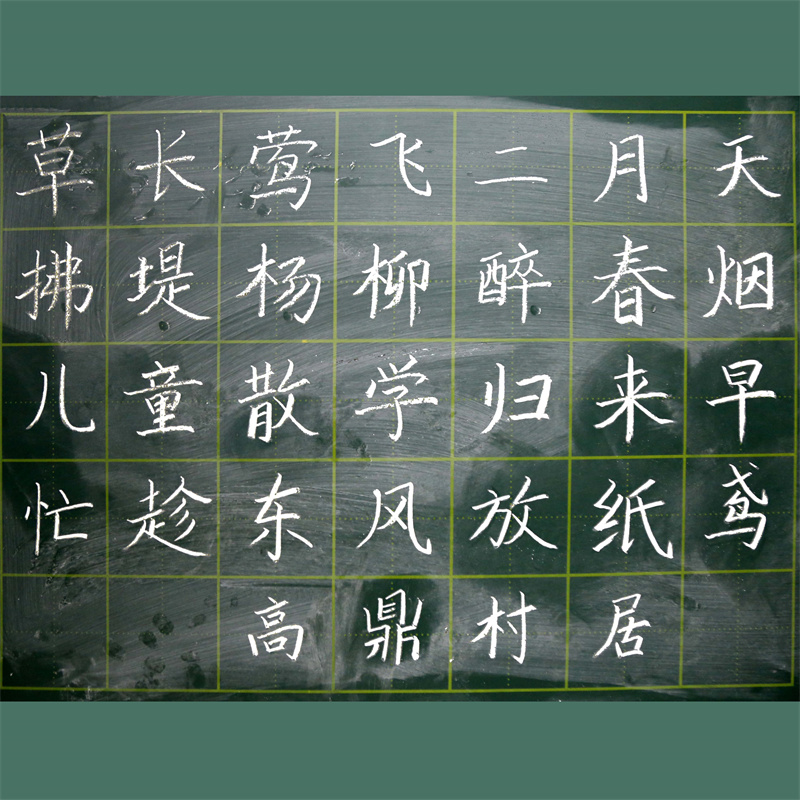 草长莺飞二月天
拂堤杨柳醉春烟
儿童散学归来早
忙趁东风放纸鸢
高鼎村居